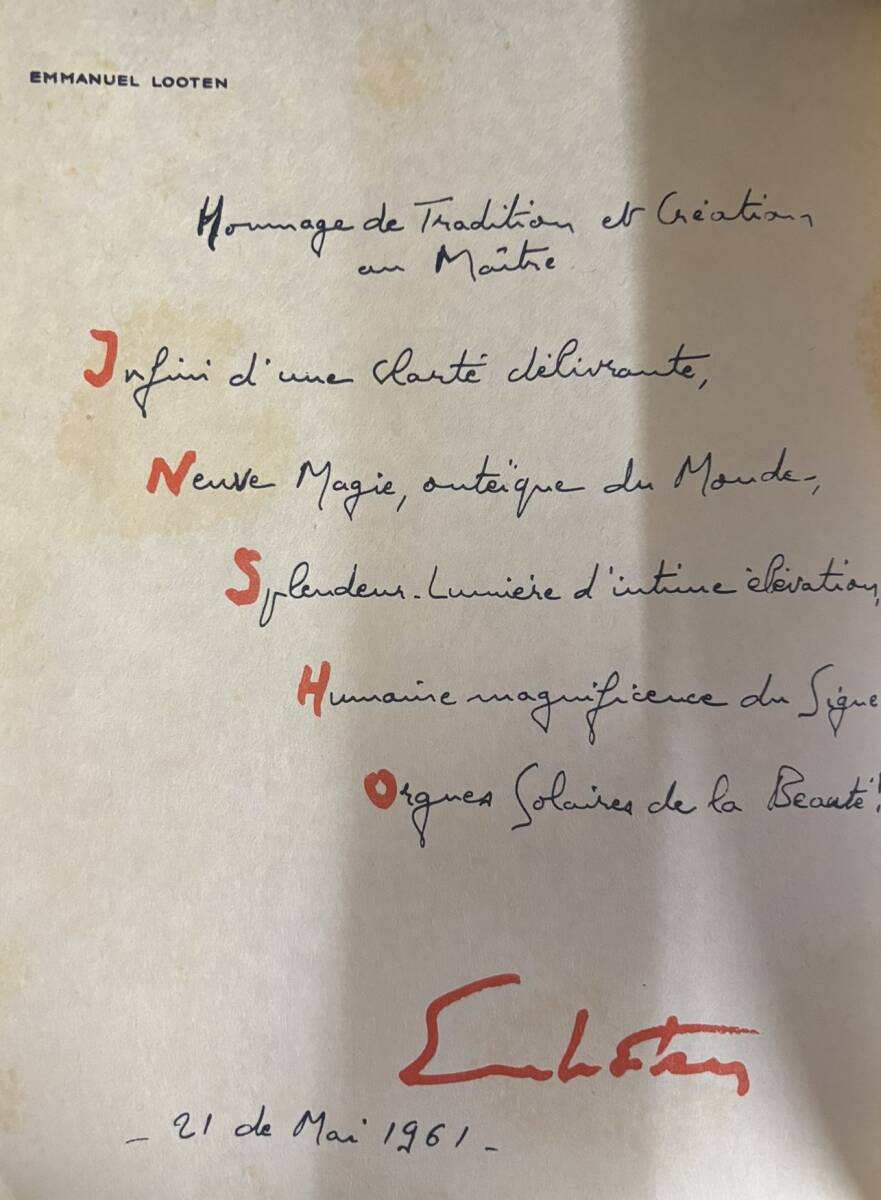 EMMANUEL LOOTEN
Hommage de Tradition et Création
au Maître
Infini d'une clarté délivrante,
Neuve Magie, du Monde,
Splendeur-Lumière d'intime élévation,
Humaine magnificence du Signe
Orgues Solaires de la Beauté!
Em Looten
- 21 de Mai 1961 -